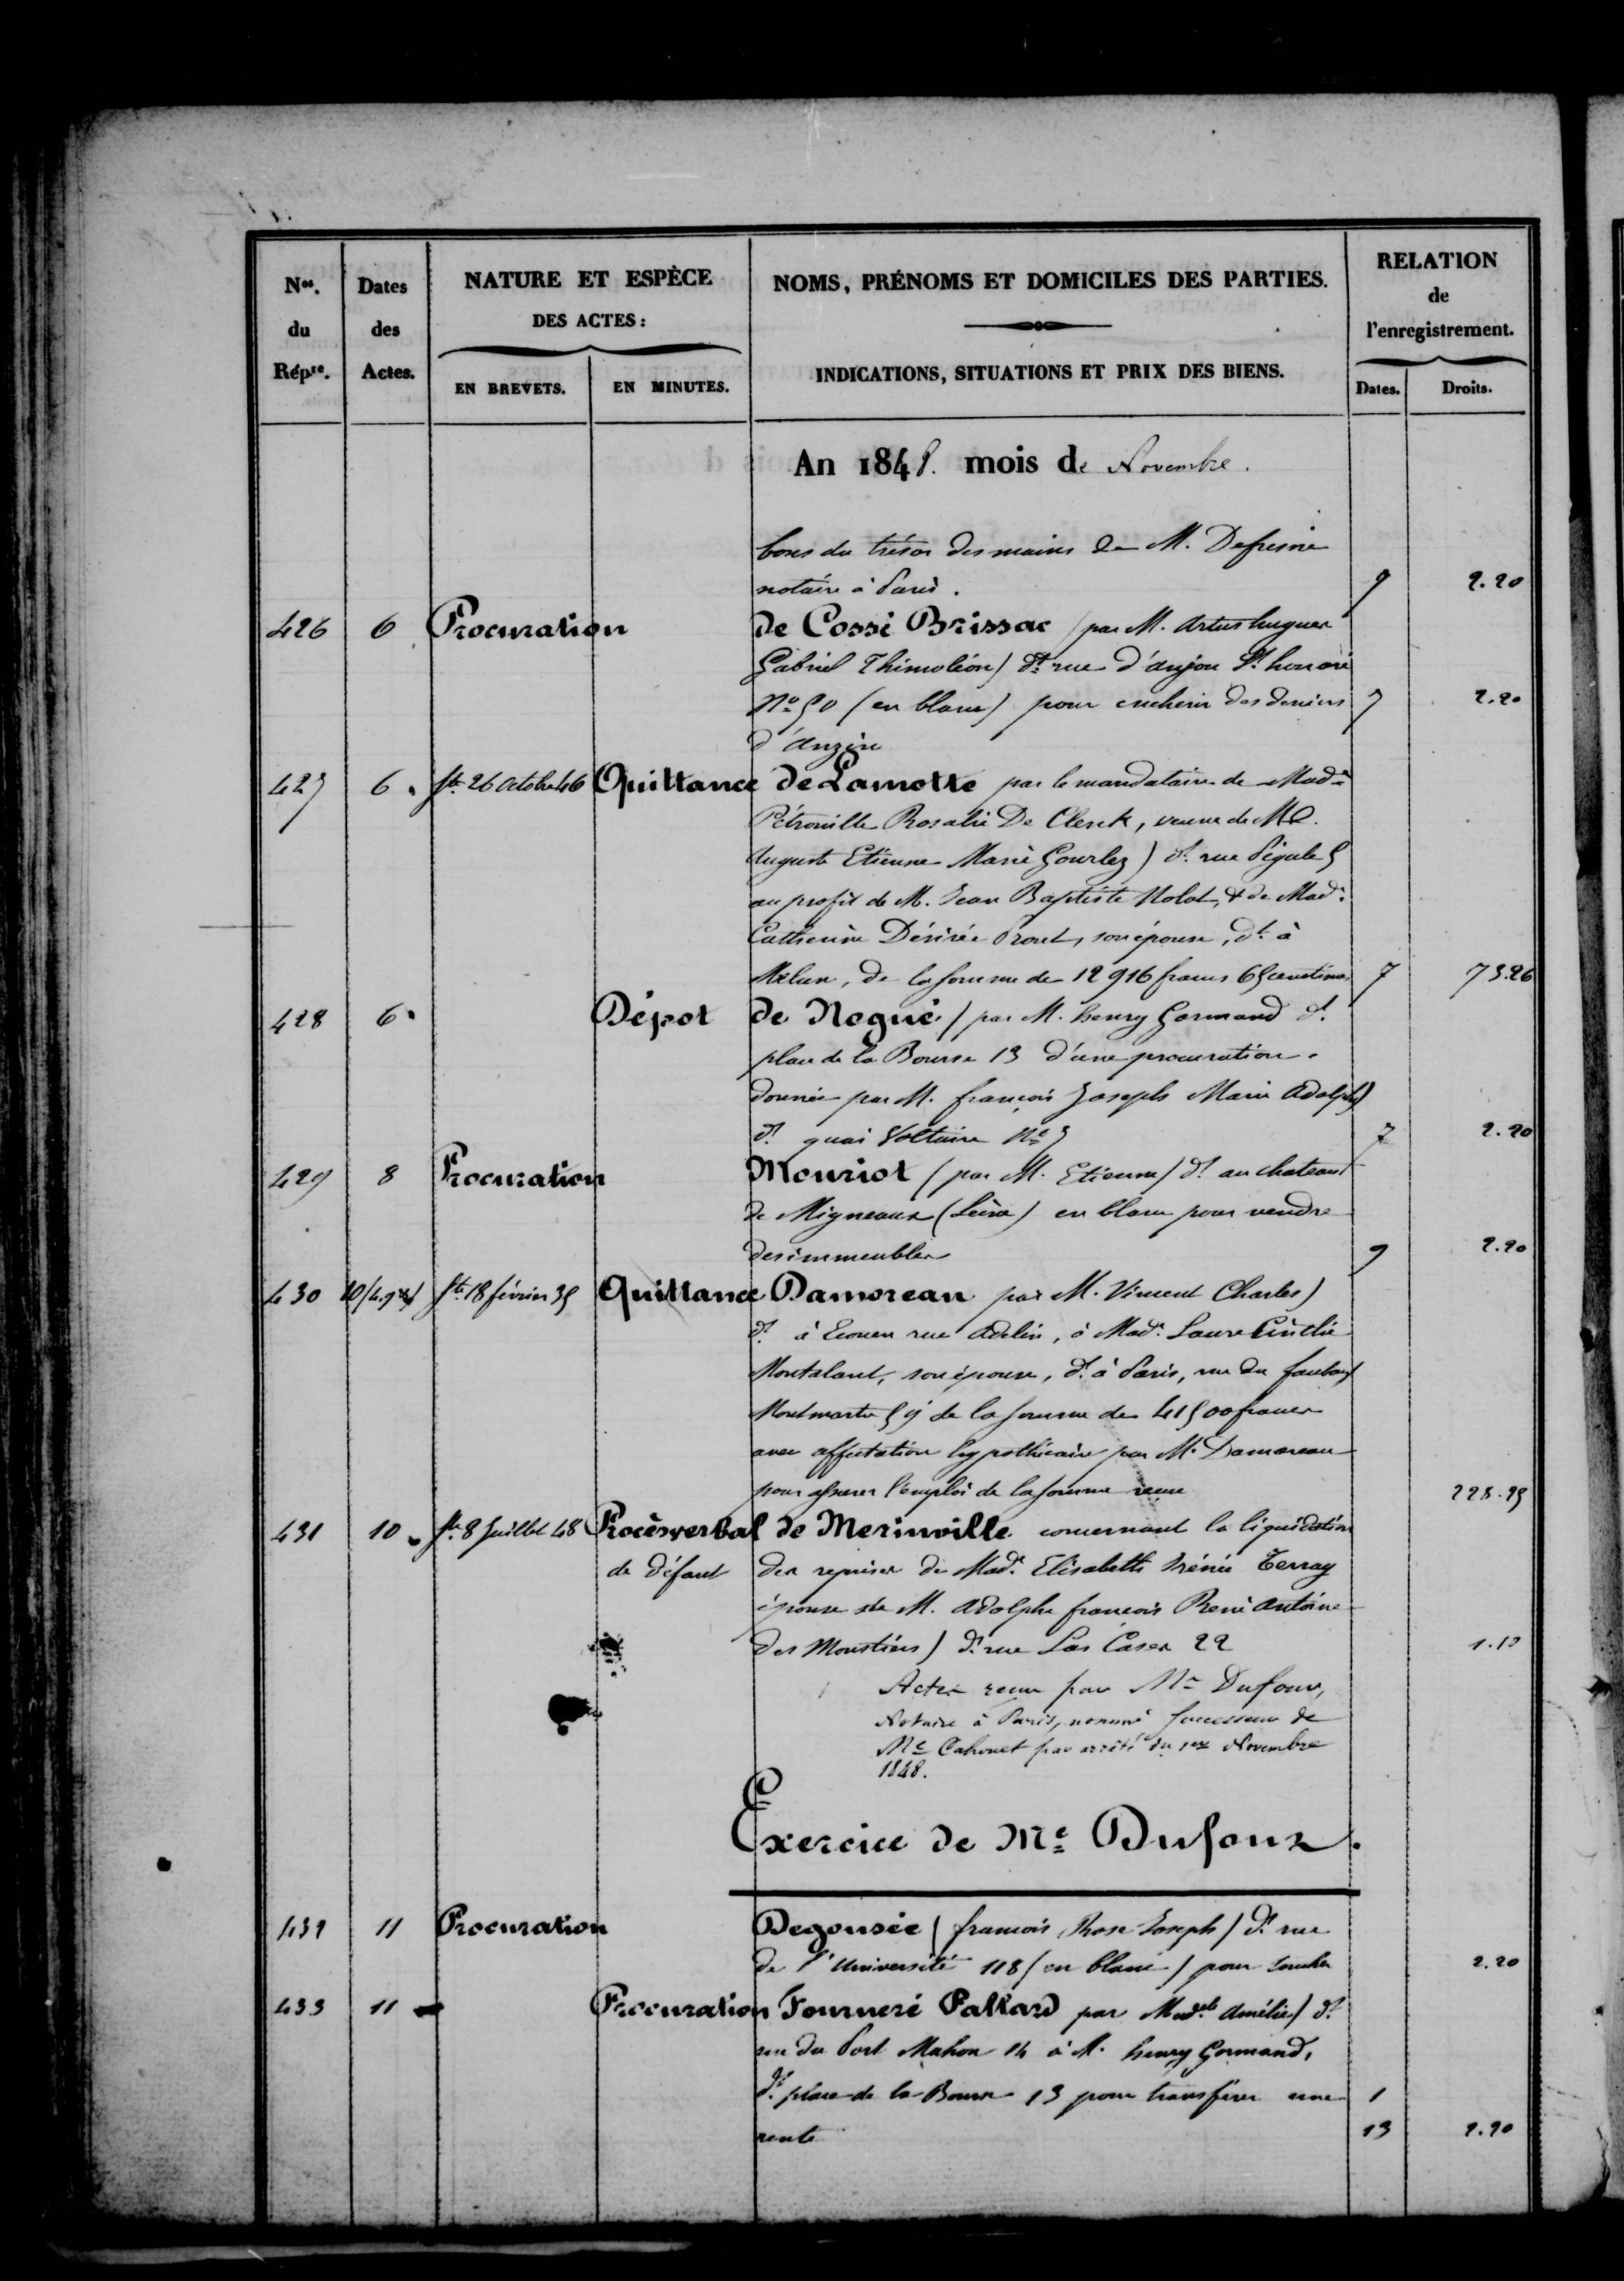 Nos. du Répre.
Dates des Actes.
NATURE ET ESPÈCE
DES ACTES:
EN BREVETS.
EN MINUTES.
NOMS, PRÉNOMS ET DOMICILES DES PARTIES.
INDICATIONS, SITUATIONS ET PRIX DES BIENS.
RELATION
de
l'enregistrement.
Dates.
Droits.
An 1848. mois de Novembre.
bons du trésor des mains de M. Defresne
notaire à Paris. 9 2.20
426 6 Procuration de Cossé Brissac (par M. Artus hugues
Gabriel Thimoléon) dt rue d'anjou St. honoré
No 50 (en blanc) pour enchérir des deniers 7 2.20
d'Anzin
427 6 Ste 26 octobre 46 Quittance de Lamotte par le mandataire de Made
Pétronille Rosalie De Clerck, veuve de M.
Auguste Etienne Marie Gourlez) dt rue Pigale 5
au profit de M. Jean Baptiste Nolot, & de Made
Catherine Désirée Prout, son épouse, dt à
Melun, de la somme de 12 916 francs 65 centimes 7 73.26
428 6 Dépot de Nogué (par M. henry Gormand dt
place de la Bourse 13 d'une procuration
donnée par M. françois Joseph Marie Adolphe)
dt quai Voltaire No 5 7 2.20
429 8 Procuration Mouriot (par M. Etienne) dt au chateau
de Migneaux (Seine) en blanc pour vendre
des immeubles 9 2.20
430 10 Ste 18 février 35 Quittance Damoreau par M. Vincent Charles)
dt à Ecouen rue Adeline, à Made Laure Cinthie
Montalant, son épouse, dt à Paris, rue du faubourg
Montmartre 59 de la somme de 41500 francs
avec affectation hypothécaire par M. Damoreau
pour assurer l'emploi de la somme reçue 228.25
431 10 Ste 8 Juillet 48 Procèsverbal de Merinville concernant la liquidation
de défaut des reprises de Made Elisabeth Irénée Terray
épouse de M. Adolphe françois René Antoine
des Moustiers) dt rue Las Cases 22 1.10
Actes reçus par Me Dufour,
Notaire à Paris, nommé successeur de
Me Cahouet par arrêté du 1er Novembre
1848.
Exercice de Me Dufour.
432 11 Procuration Degousée (françois Rose Joseph) dt rue
de l'Université 118 (en blanc) pour toucher 2.20
433 11 Procuration Fourneré Pallard par Madelle Amélie) dt
rue du Port Mahon 14 à M. henry Gormand,
dt place de la Bourse 13 pour transférer une 1
rente 13 2.20